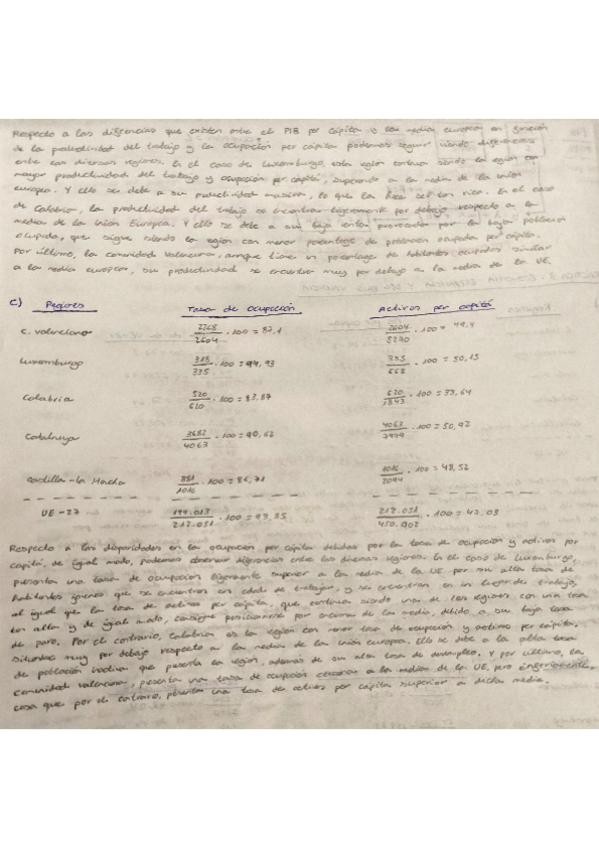 Respecto a las diferencias que existen entre el PIB per cápita y la media europea en función
de la productividad del trabajo y la ocupación per cápita podemos seguir viendo diferencias
entre las diversas regiones. En el caso de Luxemburgo, esta región continua siendo la región con
mayor productividad del trabajo y ocupación per cápita, superando a la media de la unión
europea. Y ello se debe a su productividad masiva, lo que la hace ser tan rica. En el caso
de Calabria, la productividad del trabajo se encuentra ligeramente por debajo respecto a la
media de la Unión Europea. Y ello se debe a su baja renta provocada por la baja población
ocupada, que sigue siendo la región con menor porcentage de población ocupada per cápita.
Por último, la comunidad valenciana, aunque tiene un porcentage de habitantes ocupados similar
a la media europea, su productividad se encuentra muy por debajo a la media de la UE.
c) Regiones Tasa de ocupación Activos per cápita
C. Valenciana 2268/2604 · 100 = 87,1 2604/5270 · 100 = 49,4
Luxemburgo 318/335 · 100 = 94,93 335/668 · 100 = 50,15
Calabria 520/620 · 100 = 83,87 620/1843 · 100 = 33,64
Catalunya 3682/4063 · 100 = 90,62 4063/7979 · 100 = 50,92
Castilla-la Mancha 881/1016 · 100 = 86,71 1016/2094 · 100 = 48,52
UE-27 199.013/212.051 · 100 = 93,85 212.051/450.902 · 100 = 47,03
Respecto a las disparidades en la ocupación per cápita debidas por la tasa de ocupación y activos per
cápita, de igual modo, podemos observar diferencias entre las diversas regiones. En el caso de Luxemburgo,
presenta una tasa de ocupación ligeramente superior a la media de la UE por su alta tasa de
habitantes jóvenes que se encuentran en edad de trabajar, y se encuentran en un lugar de trabajo,
al igual que la tasa de activos per cápita, que continua siendo una de las regiones con una tasa
tan alta y de igual modo, consigue posicionarse por encima de la media, debido a su baja tasa
de paro. Por el contrario, Calabria es la región con menor tasa de ocupación y activos per cápita,
situandose muy por debajo respecto a la media de la unión europea. Ello se debe a la alta tasa
de población inactiva que presenta la región, además de su alta tasa de desempleo. Y por último, la
comunidad valenciana, presenta una tasa de ocupación cercana a la media de la UE, pero inferiormente,
cosa que por el contrario, presenta una tasa de activos per cápita superior a dicha media.